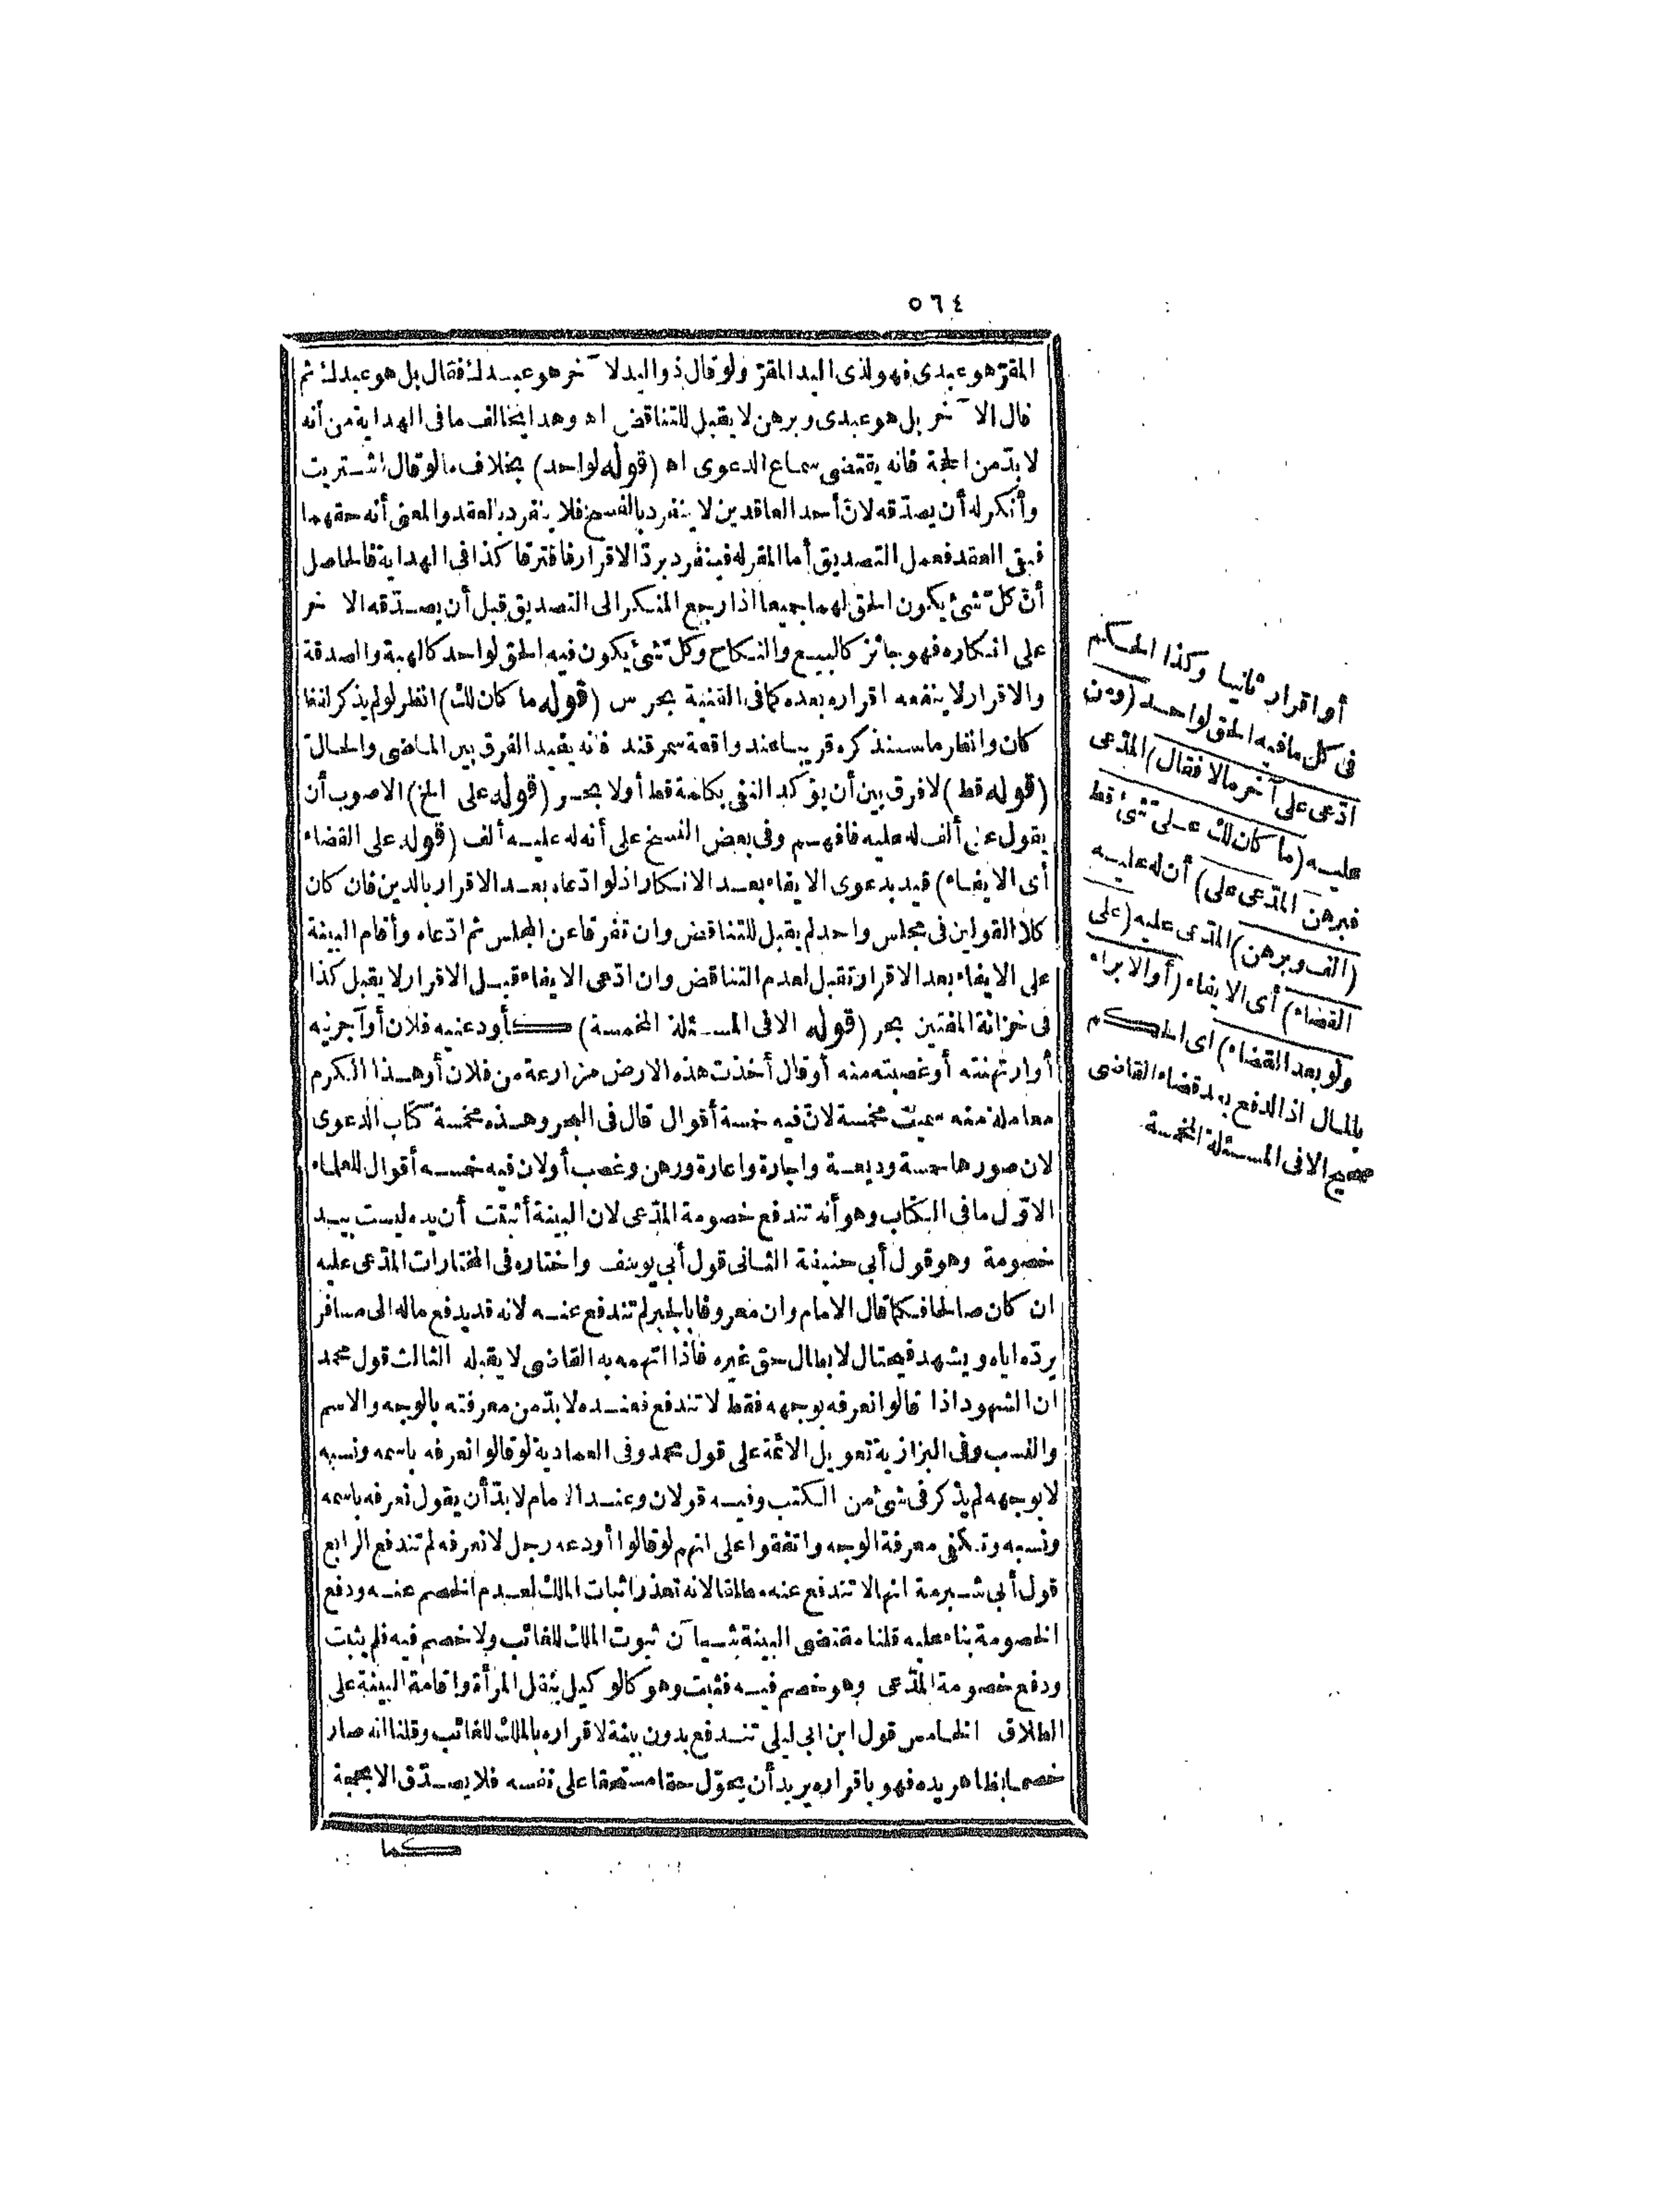 ٥٦٤
المقرّ هو عبدى فهو لذى اليد المقرّ ولو قال ذو اليد لآخر هو عبدك فقال بل هو عبدك ثم
قال الآخر بل هو عبدى وبرهن لا يقبل للتناقض اه وهذا يخالف ما فى الهداية من أنه
لا بدّ من الحجة فانه يقتضى سماع الدعوى اه (قوله لواحد) بخلاف ما لو قال اشتريت
وأنكر له أن يصدّقه لانّ أحد العاقدين لا ينفرد بالفسخ فلا ينفرد بالعقد والمعنى أنه حقهما
فبقى العقد فعمل التصديق أما المقر له فينفرد بردّ الاقرار فافترقا كذا فى الهداية فالحاصل
أنّ كلّ شئ يكون الحق لهما جميعا اذا رجع المنكر الى التصديق قبل أن يصدّقه الآخر
على انكاره فهو جائز كالبيع والنكاح وكلّ شئ يكون فيه الحق لواحد كالهبة والصدقة
والاقرار لا ينفعه اقراره بعده كما فى القنية بحر س (قوله ما كان لك) انظر لو لم يذكر لفظ
كان وانظر ما سنذكره قريبا عند واقعة سمرقند فانه يفيد الفرق بين الماضى والحال
(قوله قط) لا فرق بين أن يؤكد النفى بكلمة قط أو لا بحر (قوله على الخ) الاصوب أن
يقول عن ألف له عليه فافهم وفى بعض النسخ على أنه له عليه ألف (قوله على القضاء
أى الايفاء) قيد بدعوى الايفاء بعد الانكار اذ لو ادّعاه بعد الاقرار بالدين فان كان
كلا القولين فى مجلس واحد لم يقبل للتناقض وان تفرقا عن المجلس ثم ادّعاه وأقام البينة
على الايفاء بعد الاقرار تقبل لعدم التناقض وان ادّعى الايفاء قبل الاقرار لا يقبل كذا
فى خزانة المفتين بحر (قوله الا فى المسئلة المخمسة) كأودعنيه فلان أو آجرنيه
أو ارتهنته أو غصبته منه أو قال أخذت هذه الارض مزارعة من فلان أو هذا الكرم
معاملة منه سميت مخمسة لانّ فيه خمسة أقوال قال فى البحر وهذه مخمسة كتاب الدعوى
لان صورها خمسة وديعة واجارة واعارة ورهن وغصب أو لان فيه خمسه أقوال للعلماء
الاوّل ما فى الكتاب وهو أنه تندفع خصومة المدّعى لان البينة أثبتت أن يده ليست بيد
خصومة وهو قول أبى حنيفة الثانى قول أبى يوسف واختاره فى المختار ان المدّعى عليه
ان كان صالحا فكما قال الامام وان معروفا بالحيل لم تندفع عنه لانه قد يدفع ماله الى مسافر
يردّه اياه ويشهد فيحتال لابطال حق غيره فاذا اتهمه به القاضى لا يقبله الثالث قول محمد
ان الشهود اذا قالوا نعرفه بوجهه فقط لا تندفع فعنده لا بدّ من معرفته بالوجه والاسم
والنسب وفى البزازية تعويل الائمة على قول محمد وفى العمادية لو قالوا نعرفه باسمه ونسبه
لا بوجهه لم يذكر فى شئ من الكتب وفيه قولان وعند الامام لا بدّ أن يقول نعرفه باسمه
ونسبه وتكفى معرفة الوجه واتفقوا على انهم لو قالوا أودعه رجل لا نعرفه لم تندفع الرابع
قول أبى شبرمة انها لا تندفع عنه مطلقا لانه تعذر اثبات الملك لعدم الخصم عنه ودفع
الخصومة بناء عليه قلنا مقتضى البينة شيآن ثبوت الملك للغائب ولا خصم فيه فلم يثبت
ودفع خصومة المدّعى وهو خصم فيه فثبت وهو كالوكيل بنقل المرأة واقامة البينة على
الطلاق الخامس قول ابن ابى ليلى تندفع بدون بينة لاقراره بالملك للغائب وقلنا انه صار
خصما بظاهر يده فهو باقراره يريد أن يحوّل حقا مستحقا على نفسه فلا يصدّق الا بحجة
كما
أو اقرار ثانيا وكذا الحكم
فى كل ما فيه الحق لواحد (ومن
ادّعى على آخر مالا فقال) المدّعى
عليه (ما كان لك على شئ قط
فبرهن المدّعى على) أن له عليه
(الف وبرهن) المدّعى عليه (على
القضاء) أى الايفاء (أو الابراء
ولو بعد القضاء) اى الحكم
بالمال اذ الدفع بعد قضاء القاضى
صحيح الا فى المسئلة المخمسة